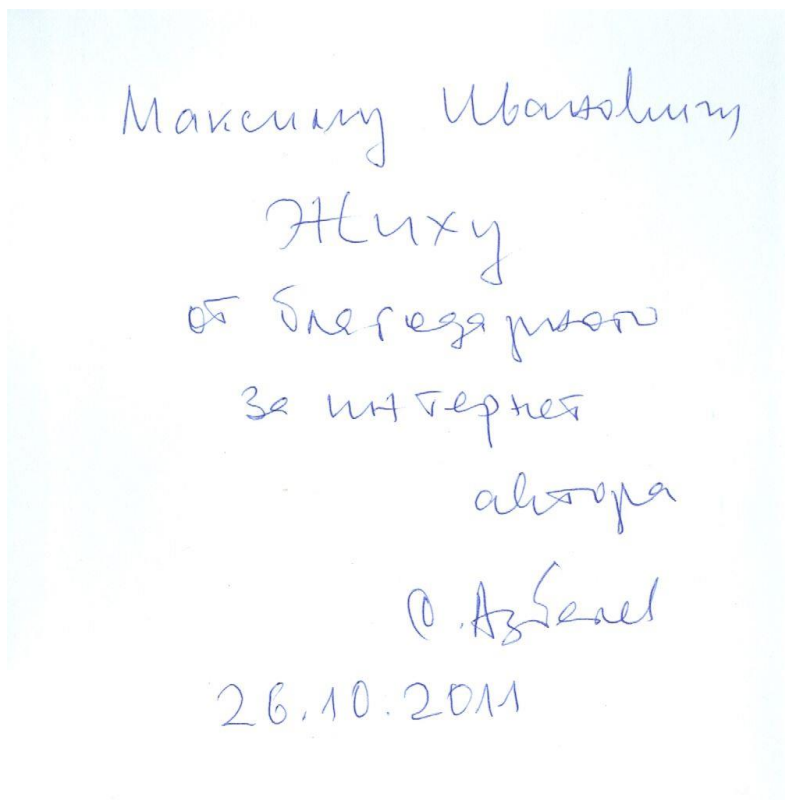 Максиму Ивановичу
Жиху
от благодарного
за интернет
автора
С. Азбелев
26.10.2011